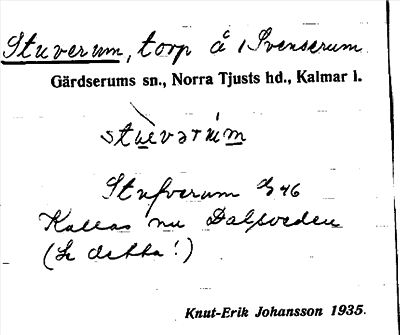 Stuverum, torp å 1 Svenserum
Gärdserums sn., Norra Tjusts hd., Kalmar l.
Stufverum E 46
Kallas nu Dalsveden
(Se detta!)
Knut-Erik Johansson 1935.